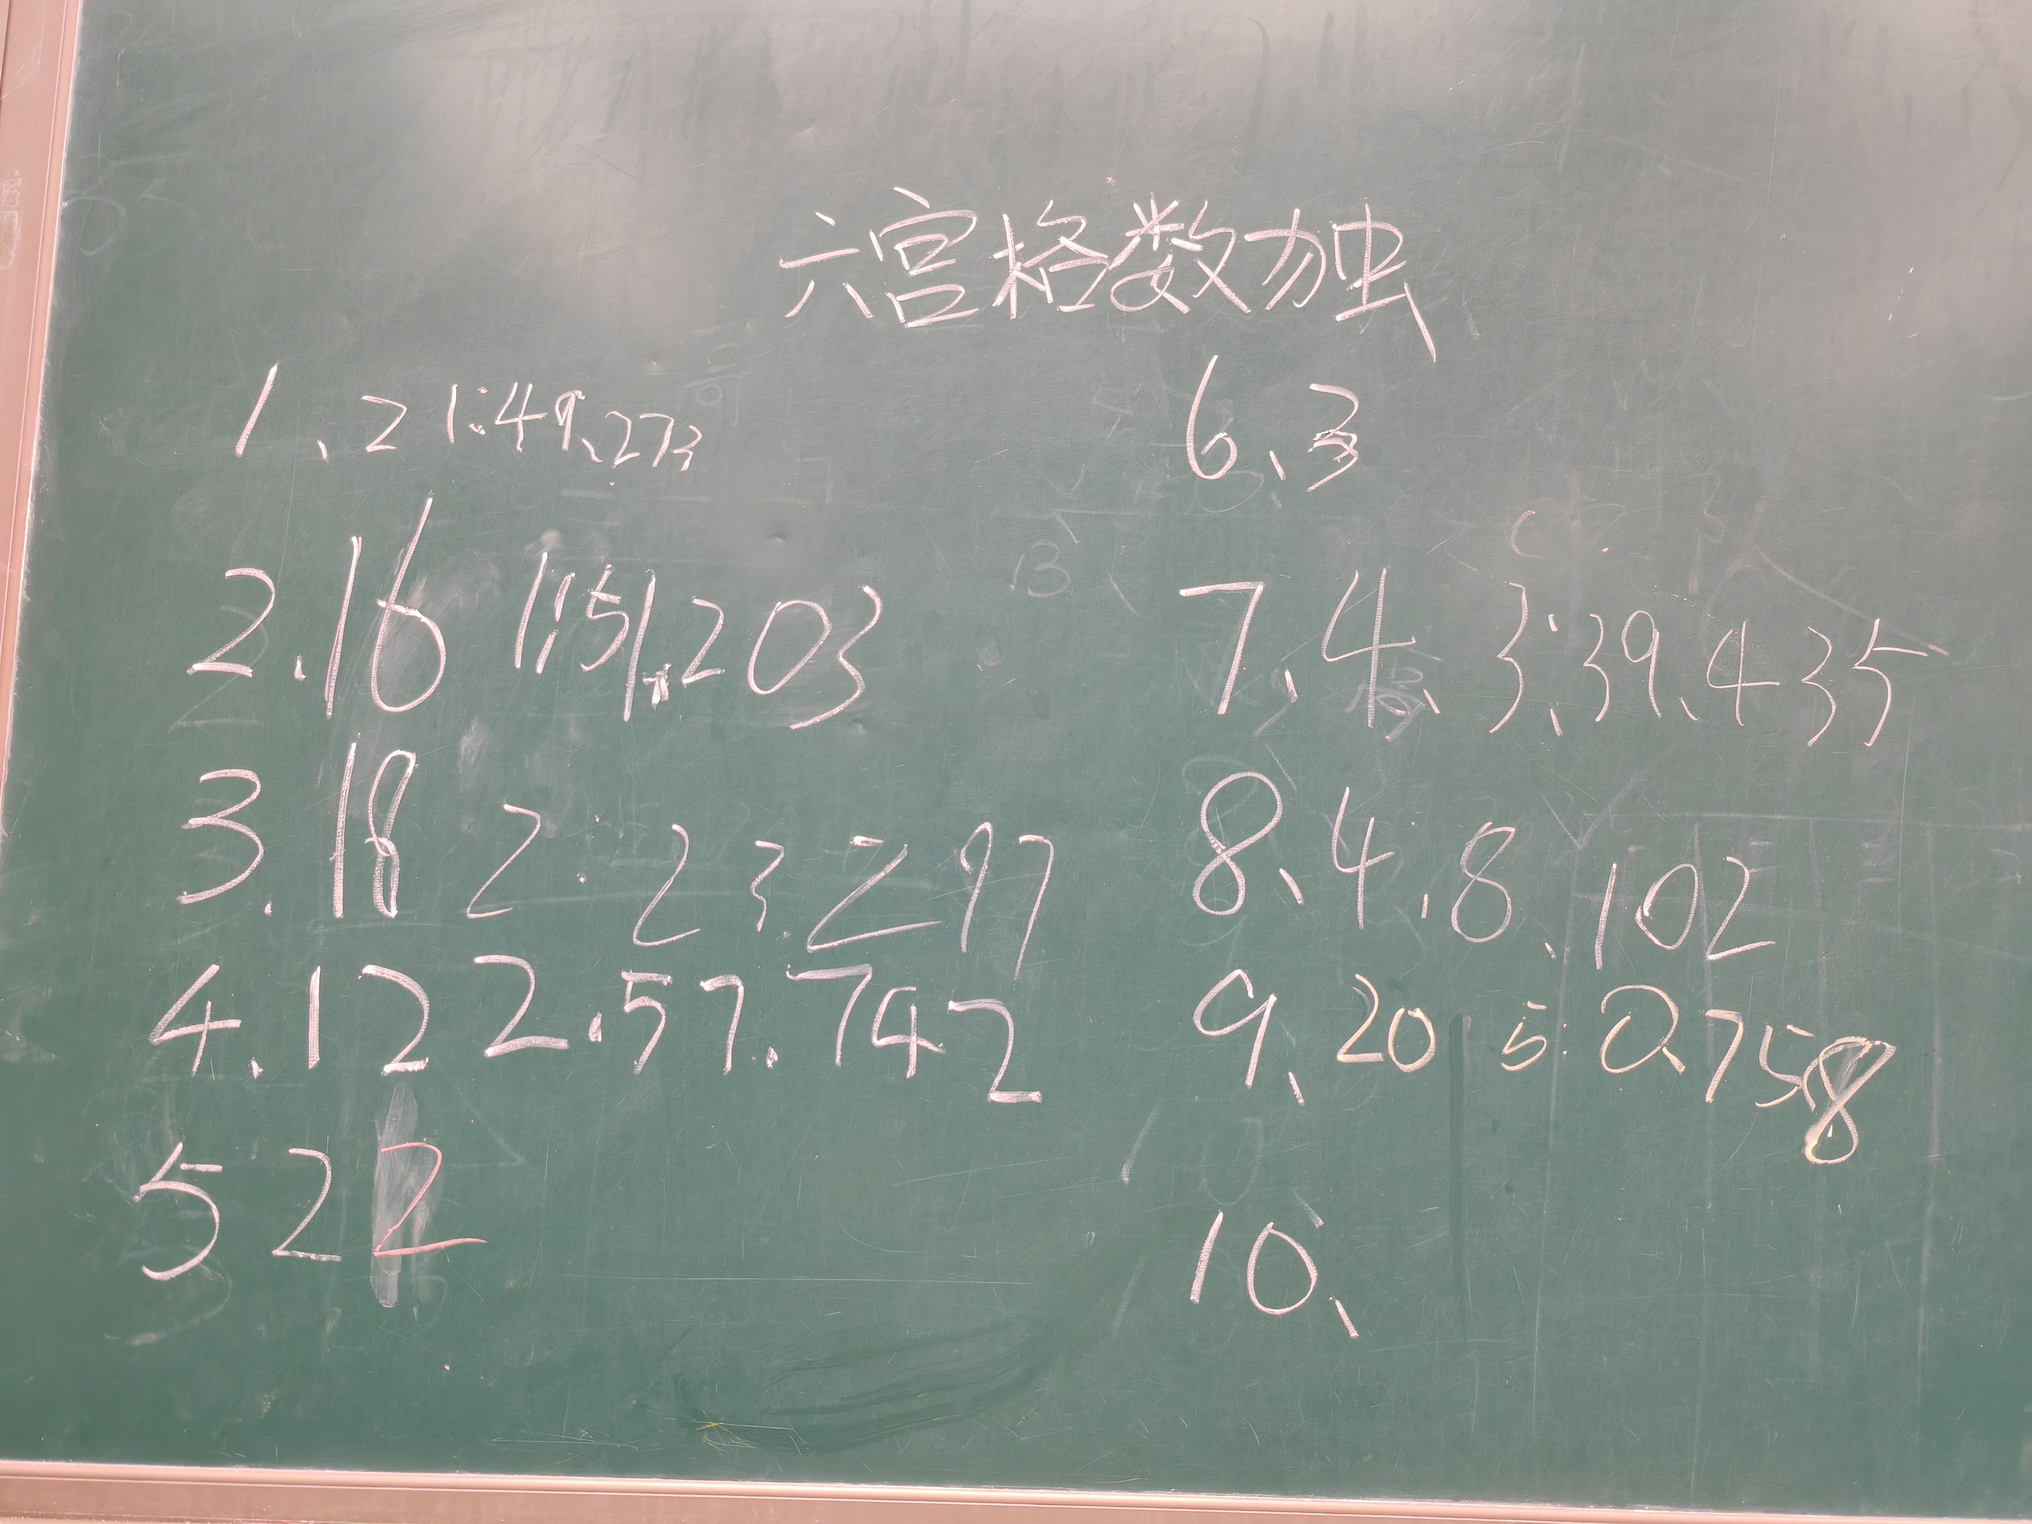 六宫格数独
1、2 1:49.273
2.16 1:51.203
3.18 2.23.297
4.12 2.57.742
5 2 2
6、3
7、4、3:39.435
8、4.8、102
9、20 5:0.758
10、